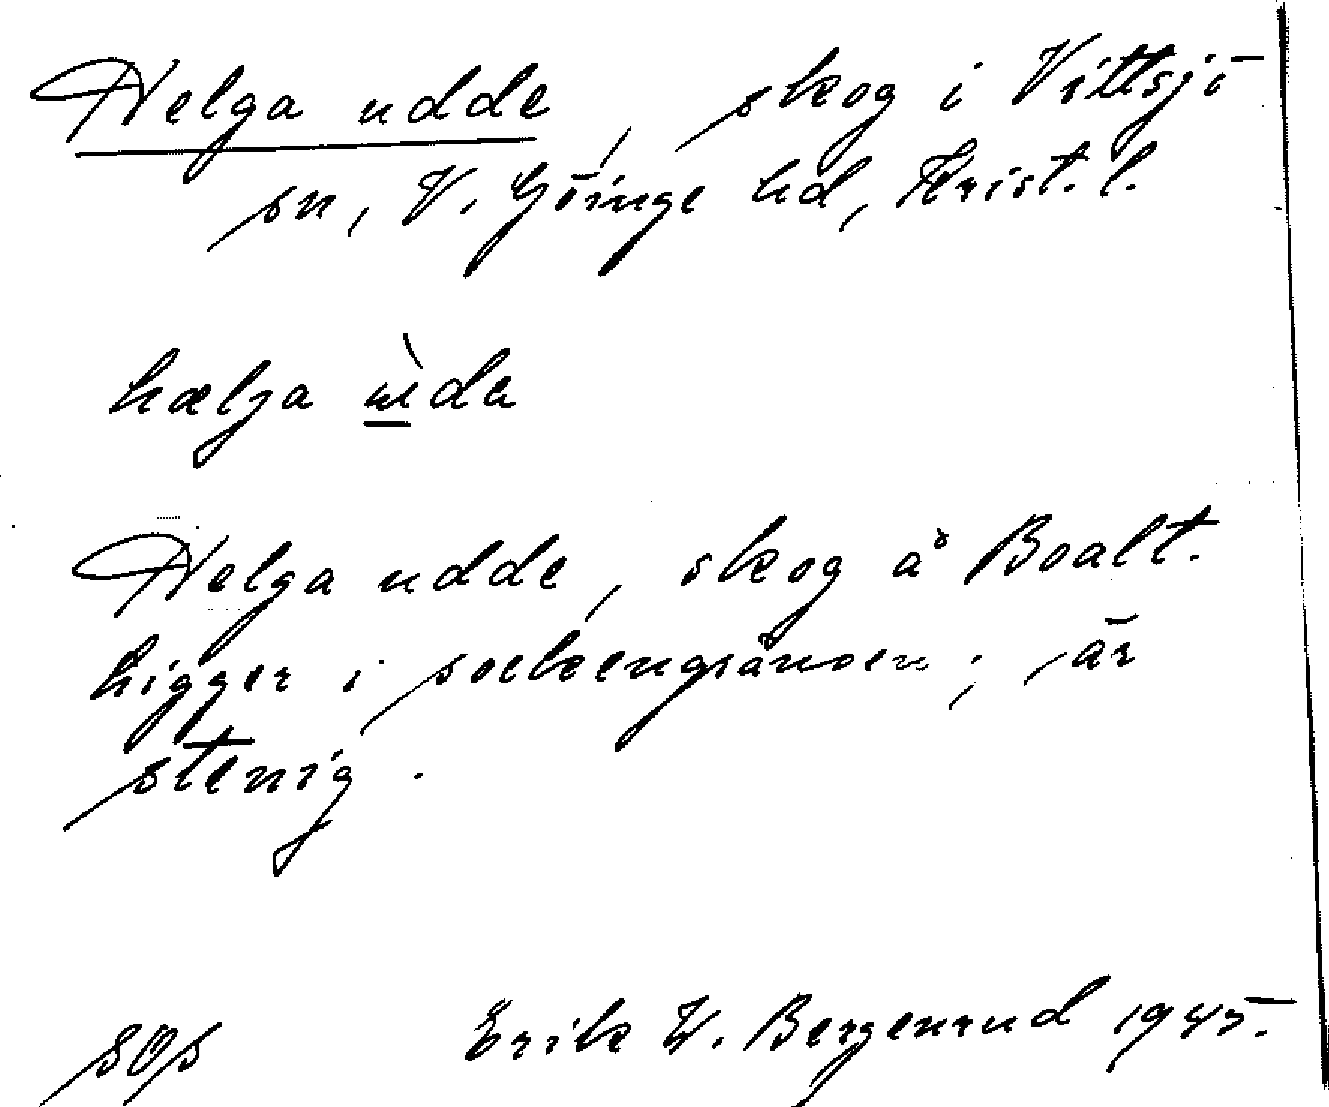 Helga udde, skog i Vittsjö
sn, V. Göinge hd, Krist. l.
hælja ùda
Helga udde, skog å Boalt.
Ligger i sockengränsen; är
stenig.
Erik W. Bergenrud 1945.